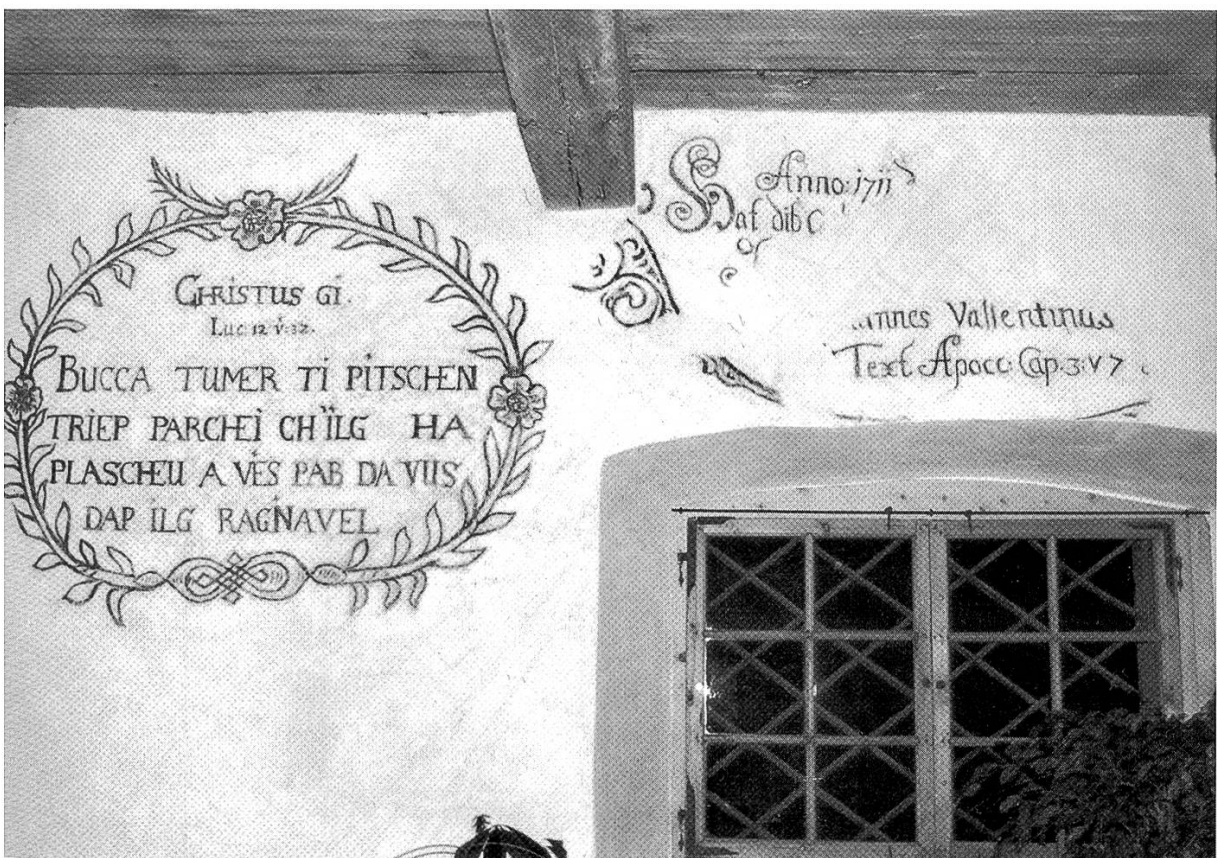 CHRISTUS GI.
Luc 12 v:32.
BUCCA TUMER TI PITSCHEN
TRIEP PARCHEI CH'ILG HA
PLASCHEU A VES PAB DA VUS
DAP ILG RAGNAVEL
Anno: 1711
Vallentinus
Text Apocc: Cap: 3: V 7